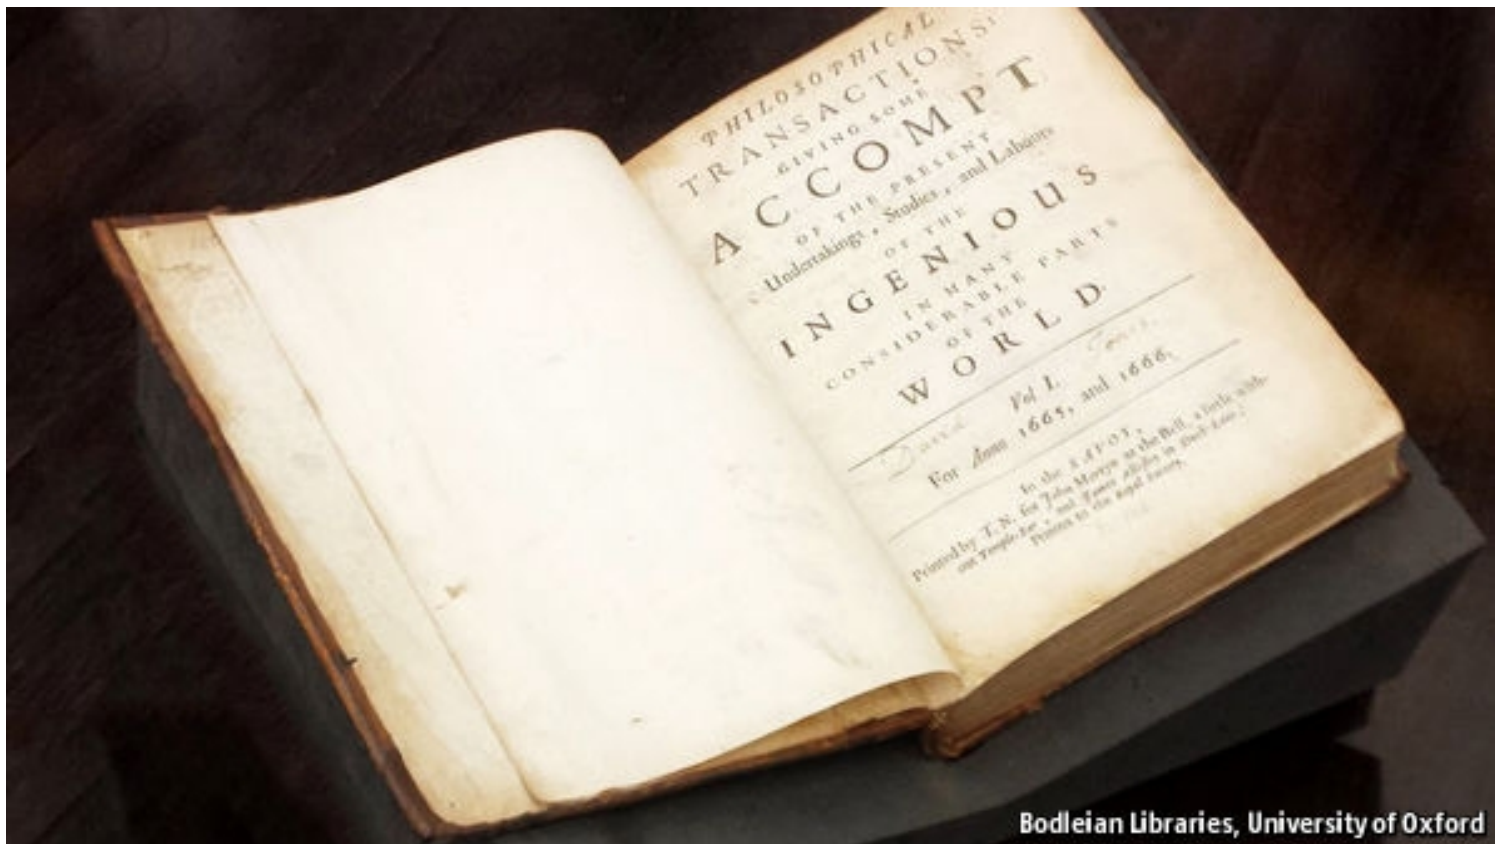 PHILOSOPHICAL
TRANSACTIONS:
GIVING SOME
ACCOMPT
OF THE PRESENT
Undertakings, Studies, and Labours
OF THE
INGENIOUS
IN MANY
CONSIDERABLE PARTS
OF THE
WORLD
Vol I.
For Anno 1665, and 1666.
In the SAVOY,
Printed by T. N. for John Martyn at the Bell, a little with-
out Temple-Bar, and James Allestry in Duck-Lane,
Printers to the Royal Society.
Bodleian Libraries, University of Oxford